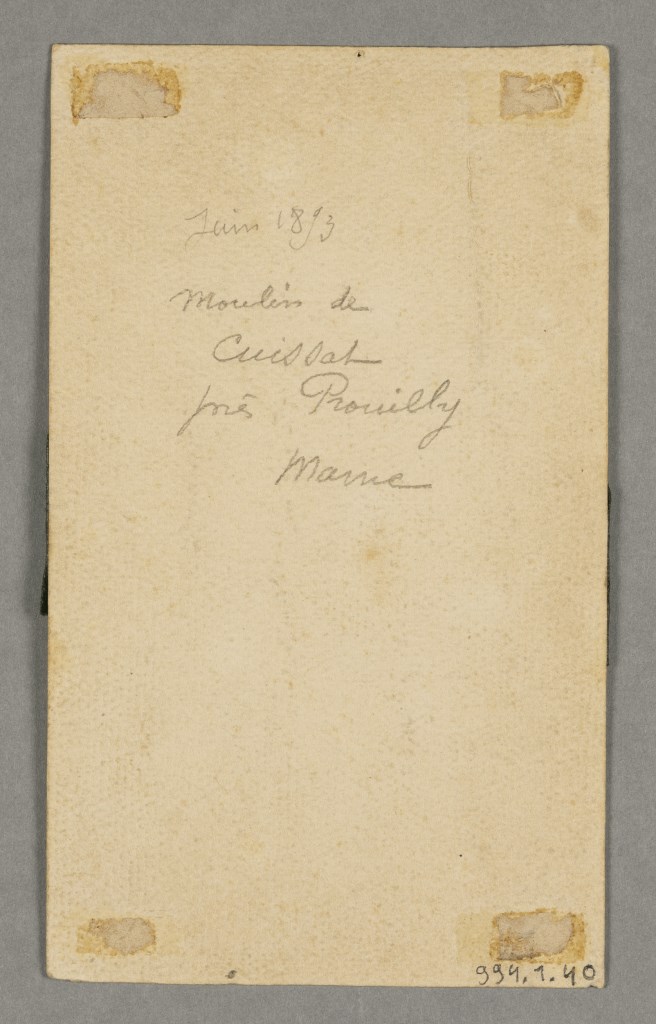 Juin 1893
Moulin de
Cuissat
près Prouilly
Marne
994.1.40